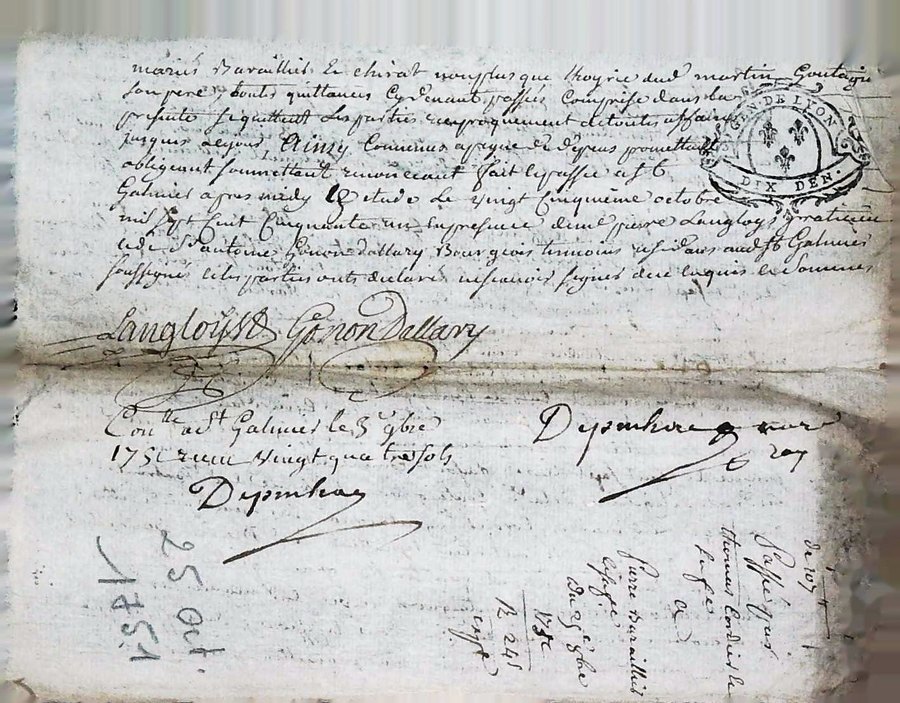 mariés Barailliet Le chirat non plus que martin Goutagny
son pere, toutes quittances Cydevant passés Comprise dans la
presente se quittent Les parties reciproquement de toutes affaires
jusques a ce jour, Ainsy Convenus a peyne de depens promettant
obligeant soumettant renonceant fait et passé a St
Galmier apres midy Etude Le vingt Cinquième octobre
mil sept Cent Cinquante un En presence de me pierre Langloys praticien
et de Sr antoine Gonon dallary Bourgeois temoins residans aud St Galmier
soussignés et les parties ont declaré ne scavoir signer de ce enquis et Sommés
GEN. DE LYON
DIX DEN.
Langloys Gonon Dallary
Con.lle a St Galmier le 3e 9bre
1751 recu vingt quatre sols
Depinhac
Depinhac
nore
roy
25 oct.
1751
Passé par
thomas Cordier Le
a
Pierre Barailliet
Du 25e 8bre
1751
R 24s
expt